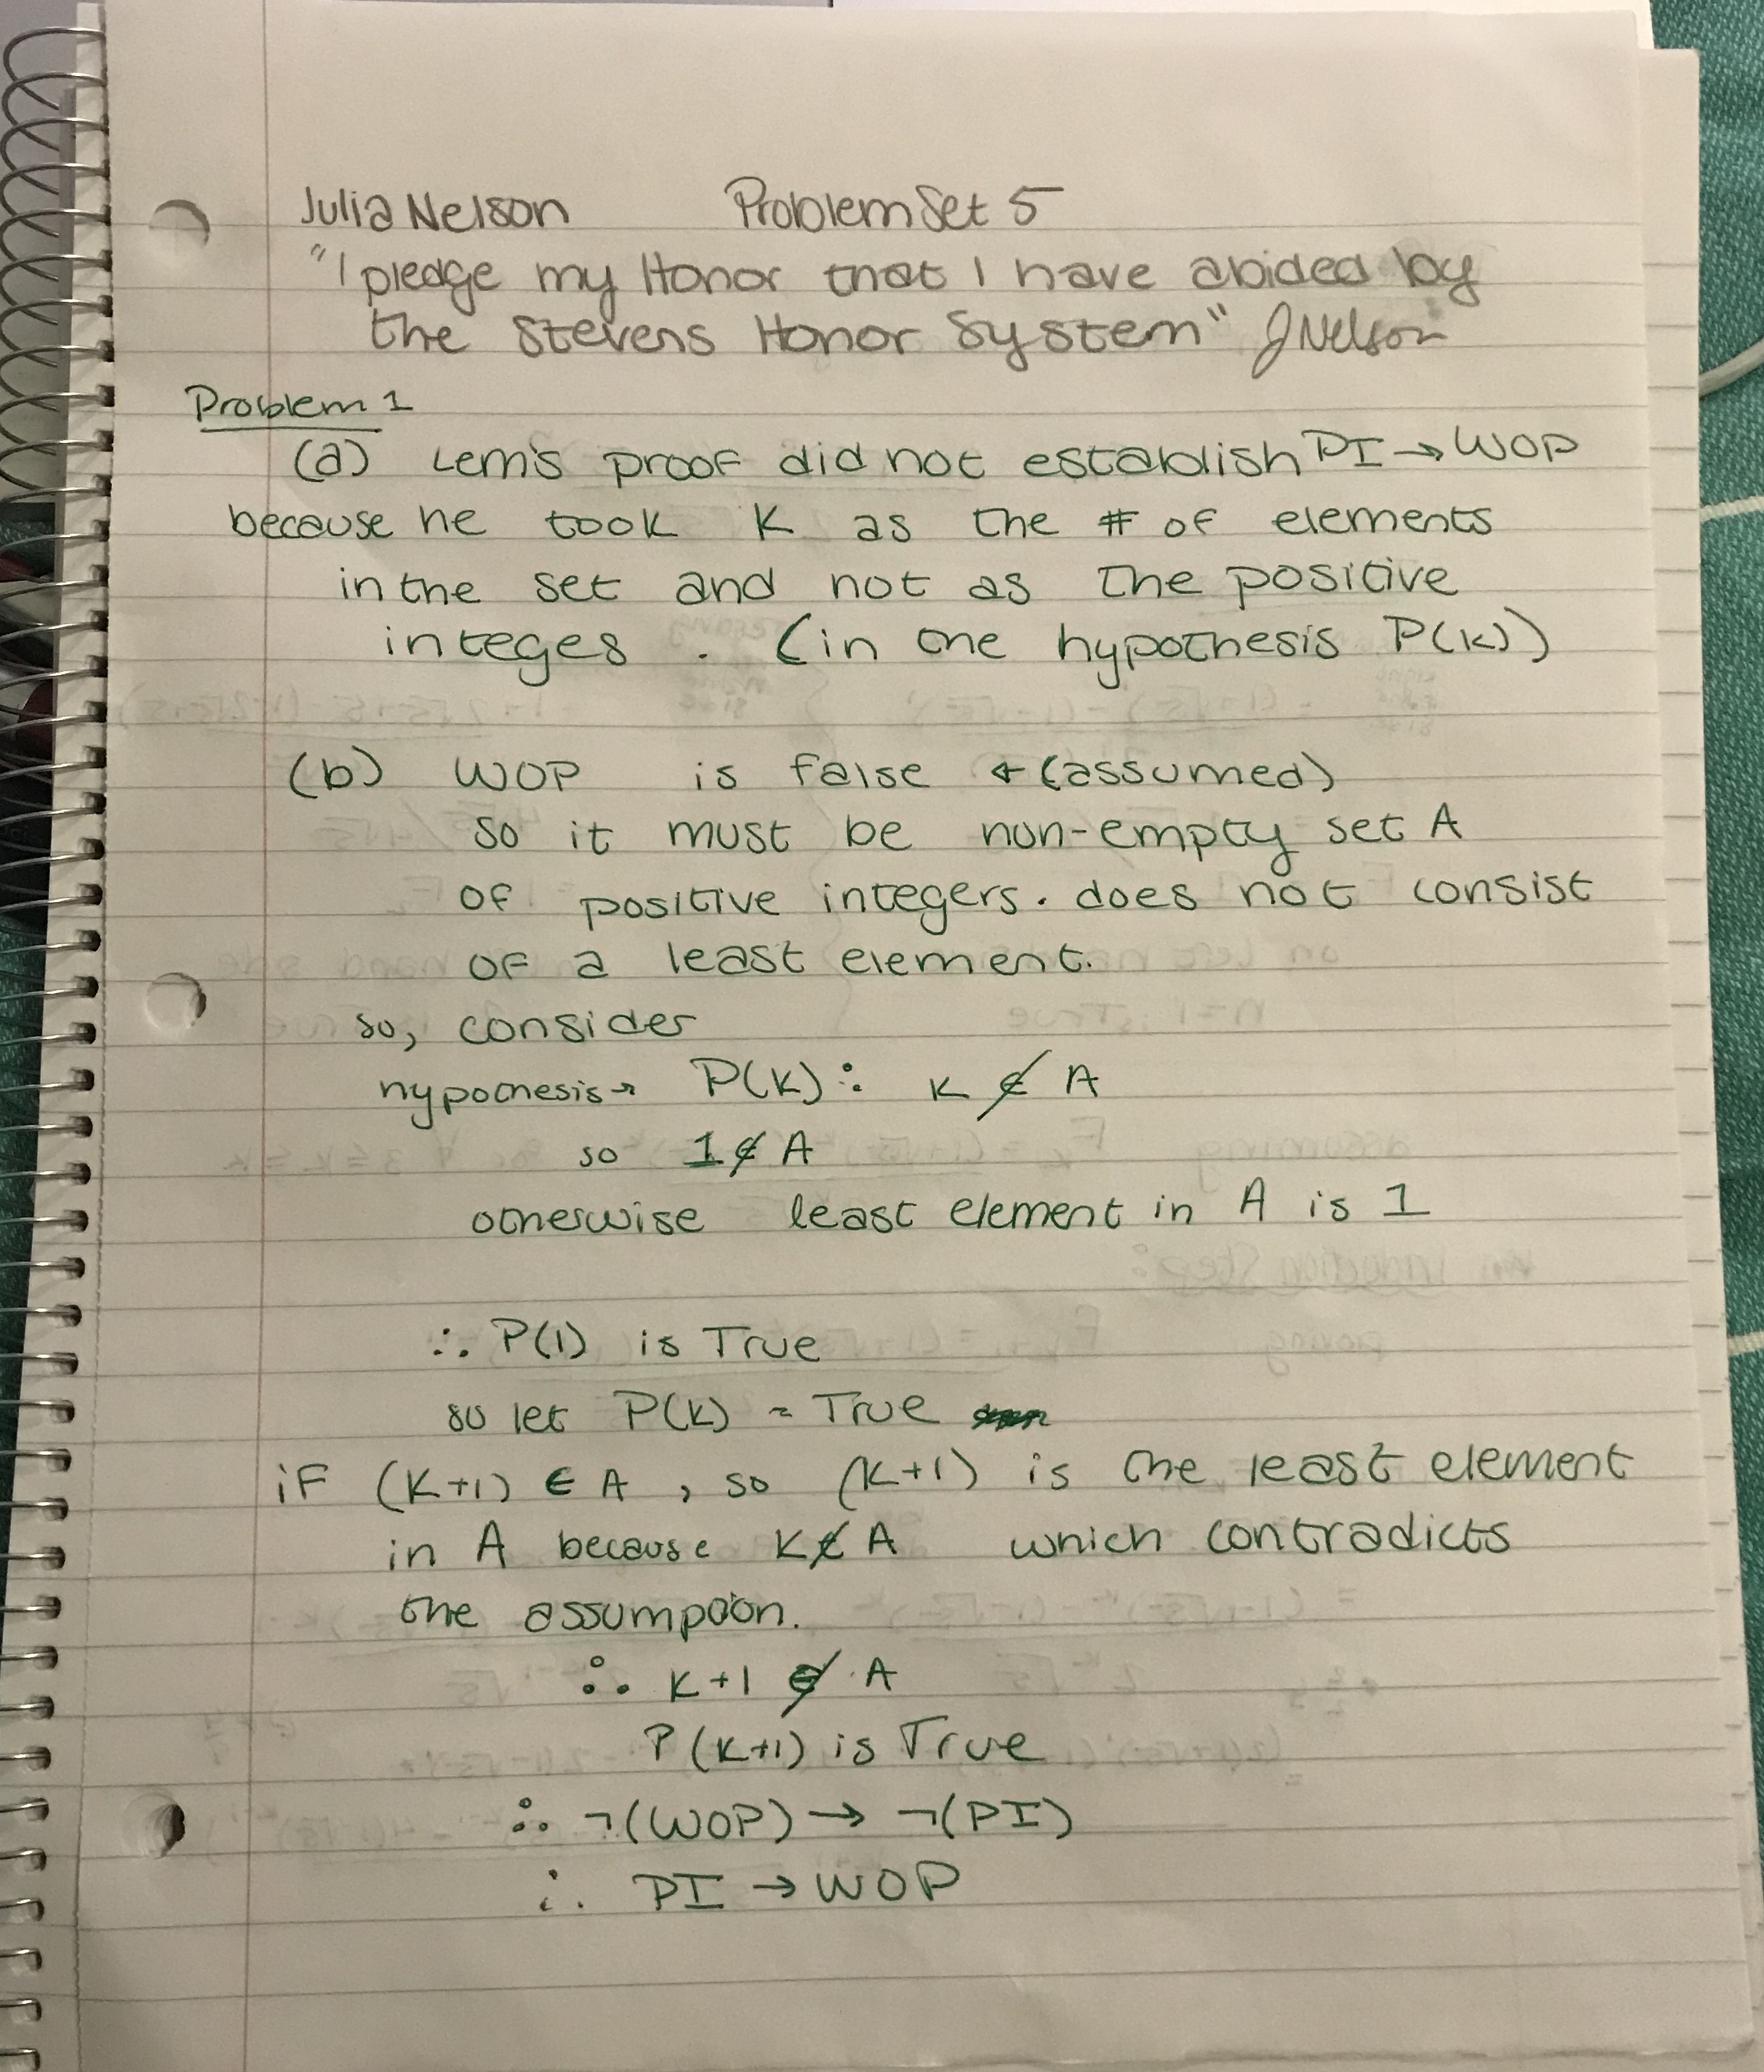 Julia Nelson Problem Set 5
"I pledge my Honor that I have abided by
the Stevens Honor System" JNelson
Problem 1
(a) Lem's proof did not establish PI → WOP
because he took K as the # of elements
in the set and not as the positive
integes . (in the hypothesis P(k))
(b) WOP is false ← (assumed)
so it must be non-empty set A
of positive integers. does not consist
of a least element.
so, consider
hypothesis → P(k): K ∉ A
so 1 ∉ A
otherwise least element in A is 1
∴ P(1) is True
so let P(k) = True
if (K+1) ∈ A, so (K+1) is the least element
in A because K ∉ A which contradicts
the assumption.
∴ K+1 ∉ A
P(K+1) is True
∴ ¬(WOP) → ¬(PI)
∴ PI → WOP